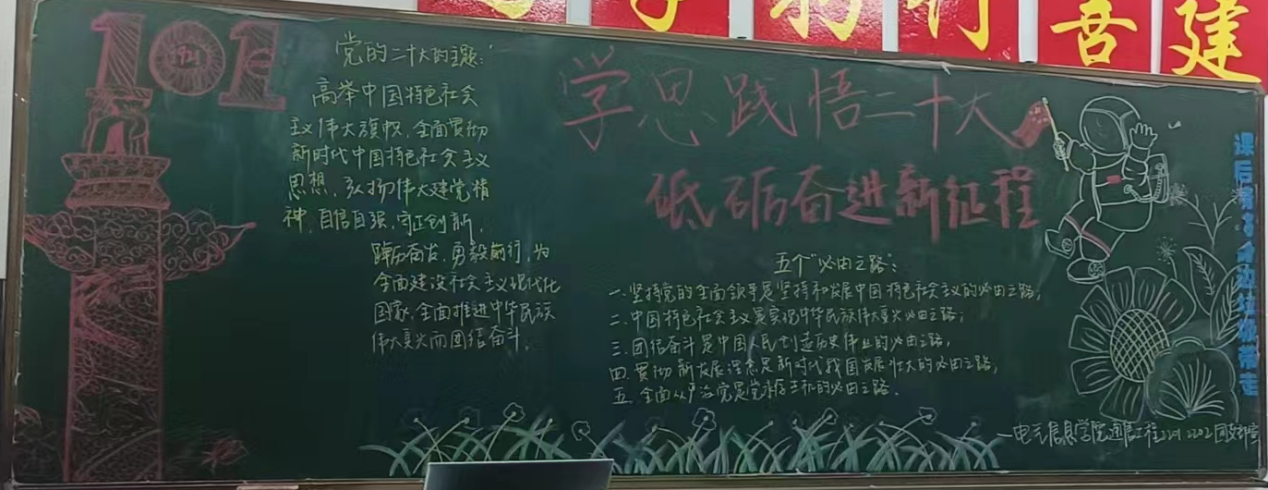 喜建
101
党的二十大的主题：
高举中国特色社会
主义伟大旗帜，全面贯彻
新时代中国特色社会主义
思想，弘扬伟大建党精
神，自信自强，守正创新，
踔厉奋发，勇毅前行，为
全面建设社会主义现代化
国家，全面推进中华民族
伟大复兴而团结奋斗。
学思践悟二十大
砥砺奋进新征程
五个“必由之路”：
一.坚持党的全面领导是坚持和发展中国特色社会主义的必由之路；
二.中国特色社会主义是实现中华民族伟大复兴必由之路；
三.团结奋斗是中国人民创造历史伟业的必由之路；
四.贯彻新发展理念是新时代我国发展壮大的必由之路；
五.全面从严治党是党 的必由之路。
课后 身边垃圾带走
—电子信息学院通信工程2201 2202团支部宣